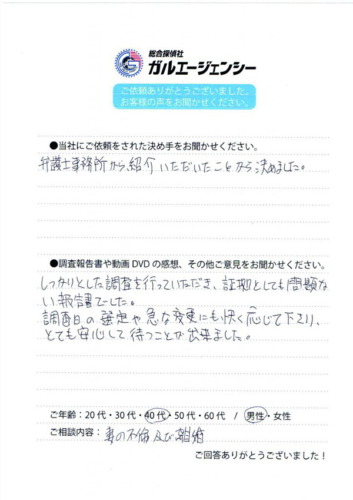 総合探偵社
ガルエージェンシー
ご依頼ありがとうございました。
お客様の声をお聞かせください。
●当社にご依頼をされた決め手をお聞かせください。
弁護士事務所から紹介いただいたことから決めました。
●調査報告書や動画DVDの感想、その他ご意見をお聞かせください。
しっかりとした調査を行っていただき、証拠としても問題な
い報告書でした。
調査日の選定や急な変更にも快く応じて下さり、
とても安心して待つことが出来ました。
ご年齢：20代・30代・40代・50代・60代 / 男性・女性
ご相談内容：妻の不倫及び離婚
ご回答ありがとうございました！